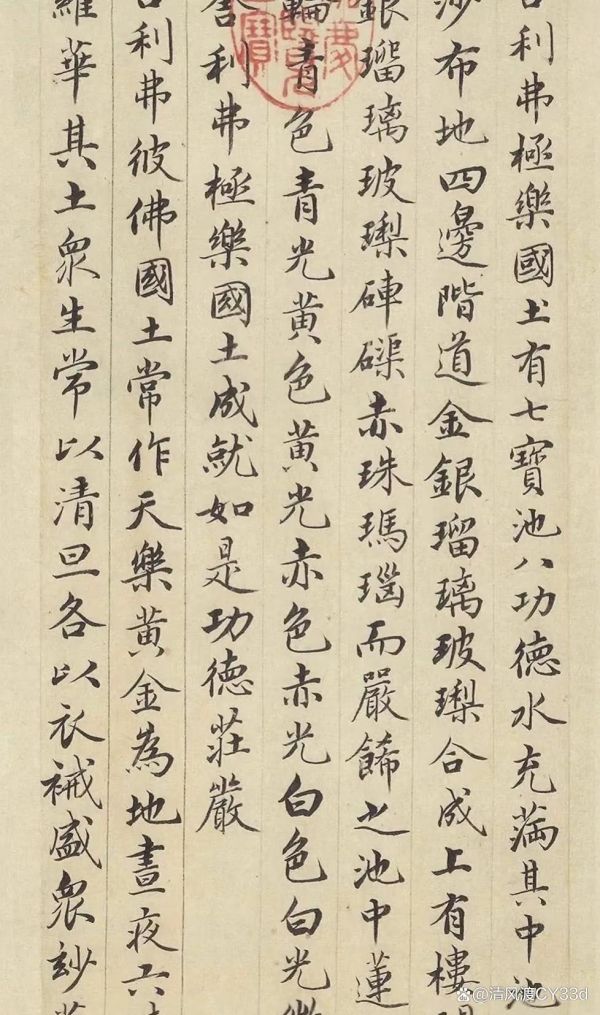 舍利弗極樂國土有七寶池八功德水充滿其中池
沙布地四邊階道金銀瑠璃玻瓈合成上有樓
銀瑠璃玻瓈硨磲赤珠瑪瑙而嚴飾之池中蓮
輪青色青光黃色黃光赤色赤光白色白光微
舍利弗極樂國土成就如是功德莊嚴
舍利弗彼佛國土常作天樂黃金為地晝夜六
羅華其土眾生常以清旦各以衣祴盛眾妙
慶
覽
寶
@清风渡CY33d